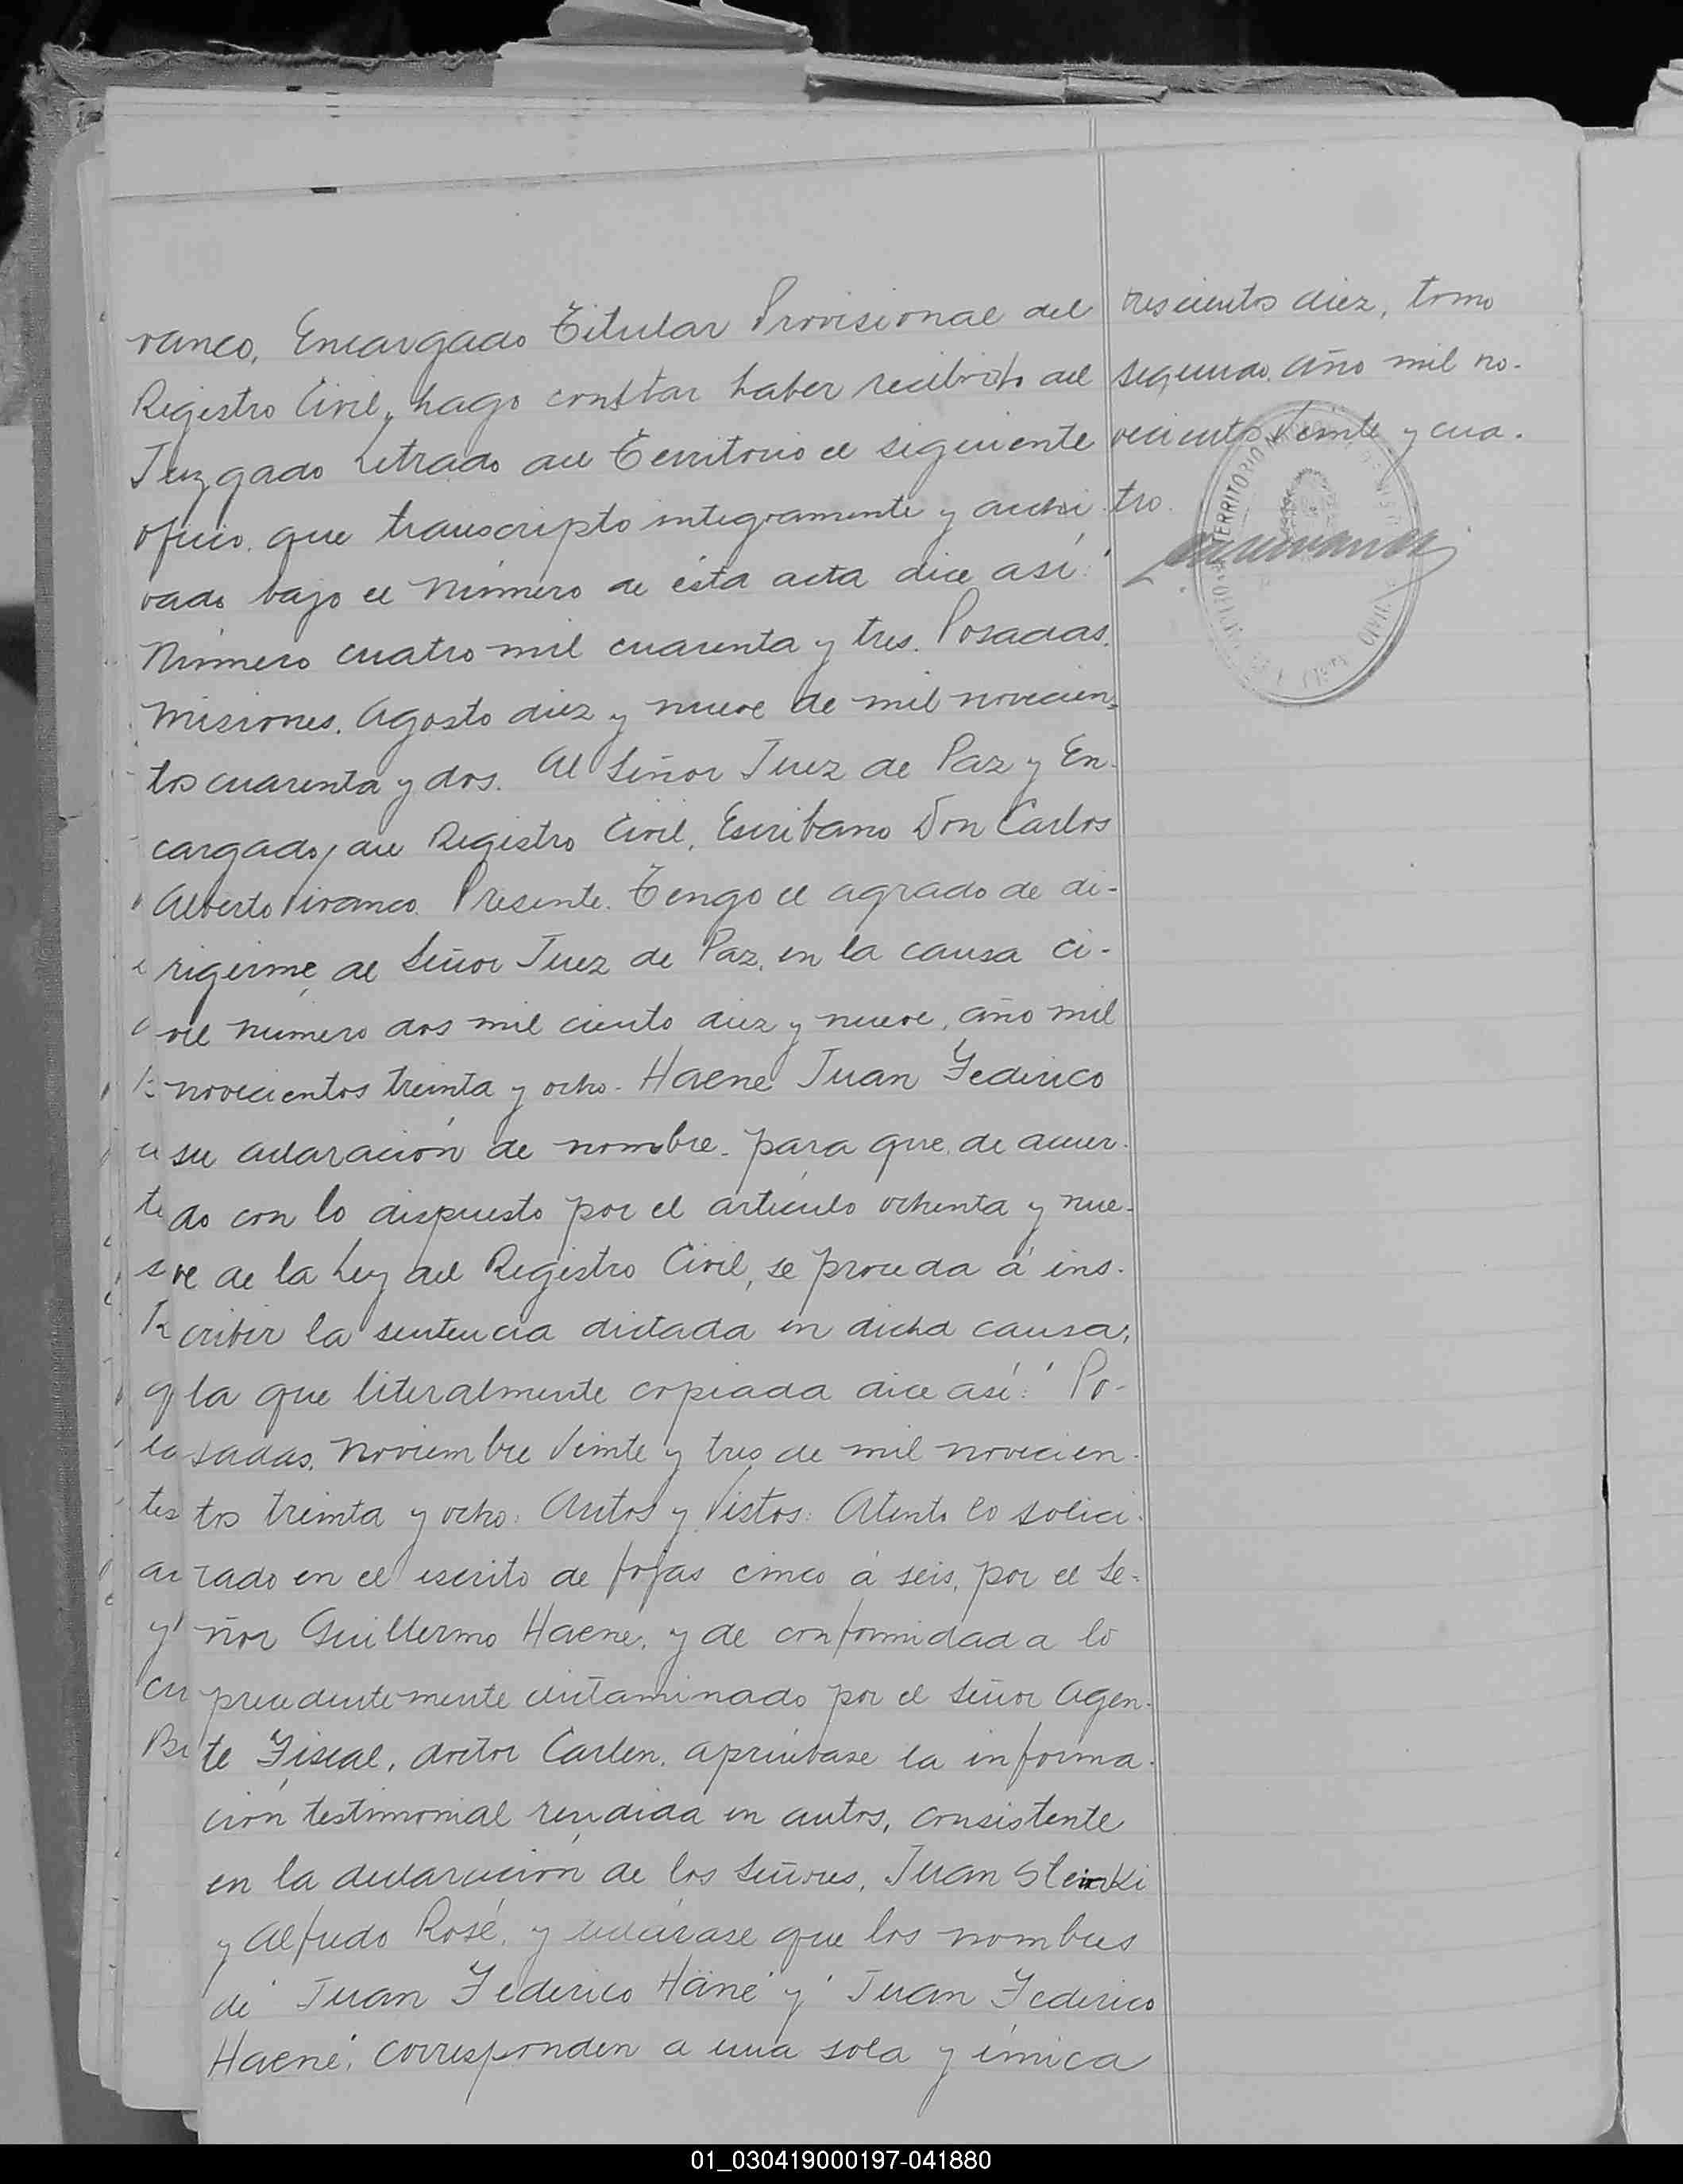 ranco, Encargado Titular Provisional del
Registro Civil, hago constar haber recibido del
Juzgado Letrado del Territorio el siguiente
oficio que transcripto integramente y archi
vado bajo el número de ésta acta dice así:"
Número cuatro mil cuarenta y tres. Posadas.
Misiones. Agosto diez y nueve de mil novecien-
tos cuarenta y dos. Al Señor Juez de Paz y En-
cargado del Registro Civil, Escribano Don Carlos
Alberto Vivanco. Presente. Tengo el agrado de di-
rigirme al Señor Juez de Paz, en la causa ci-
vil número dos mil ciento diez y nueve, año mil
novecientos treinta y ocho - Haene Juan Federico
su aclaración de nombre - para que, de acuer-
do con lo dispuesto por el artículo ochenta y nue-
ve de la Ley del Registro Civil, se proceda á ins-
cribir la sentencia dictada en dicha causa,
la que literalmente copiada dice así: "Po-
sadas, Noviembre veinte y tres de mil novecien-
tos treinta y ocho: Autos y Vistos: Atento lo solici-
tado en el escrito de fojas cinco á seis, por el Se-
ñor Guillermo Haene, y de conformidad a lo
precedentemente dictaminado por el Señor Agen-
te Fiscal, doctor Carlen, apruébase la informa-
ción testimonial rendida en autos, consistente
en la declaración de los Señores, Juan
y Alfredo Rosé, y declárase que los nombres
de "Juan Federico Häne" y "Juan Federico
Haene", corresponden a una sola y única
trescientos diez, tomo
segundo, año mil no-
vecientos veinte y cua-
tro.
TERRITORIO
01_030419000197-041880